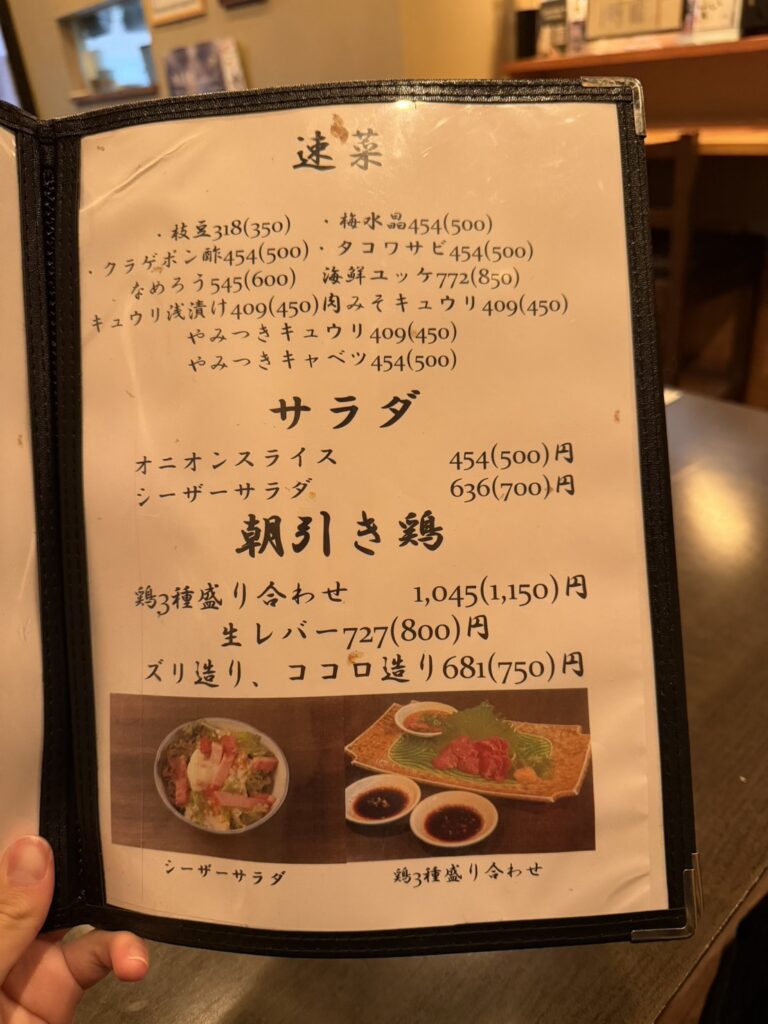 速菜
・枝豆318(350) ・梅水晶454(500)
・クラゲポン酢454(500)・タコワサビ454(500)
なめろう545(600) 海鮮ユッケ772(850)
キュウリ浅漬け409(450)肉みそキュウリ409(450)
やみつきキュウリ409(450)
やみつきキャベツ454(500)
サラダ
オニオンスライス 454(500)円
シーザーサラダ 636(700)円
朝引き鶏
鶏3種盛り合わせ 1,045(1,150)円
生レバー727(800)円
ズリ造り、ココロ造り681(750)円
シーザーサラダ 鶏3種盛り合わせ